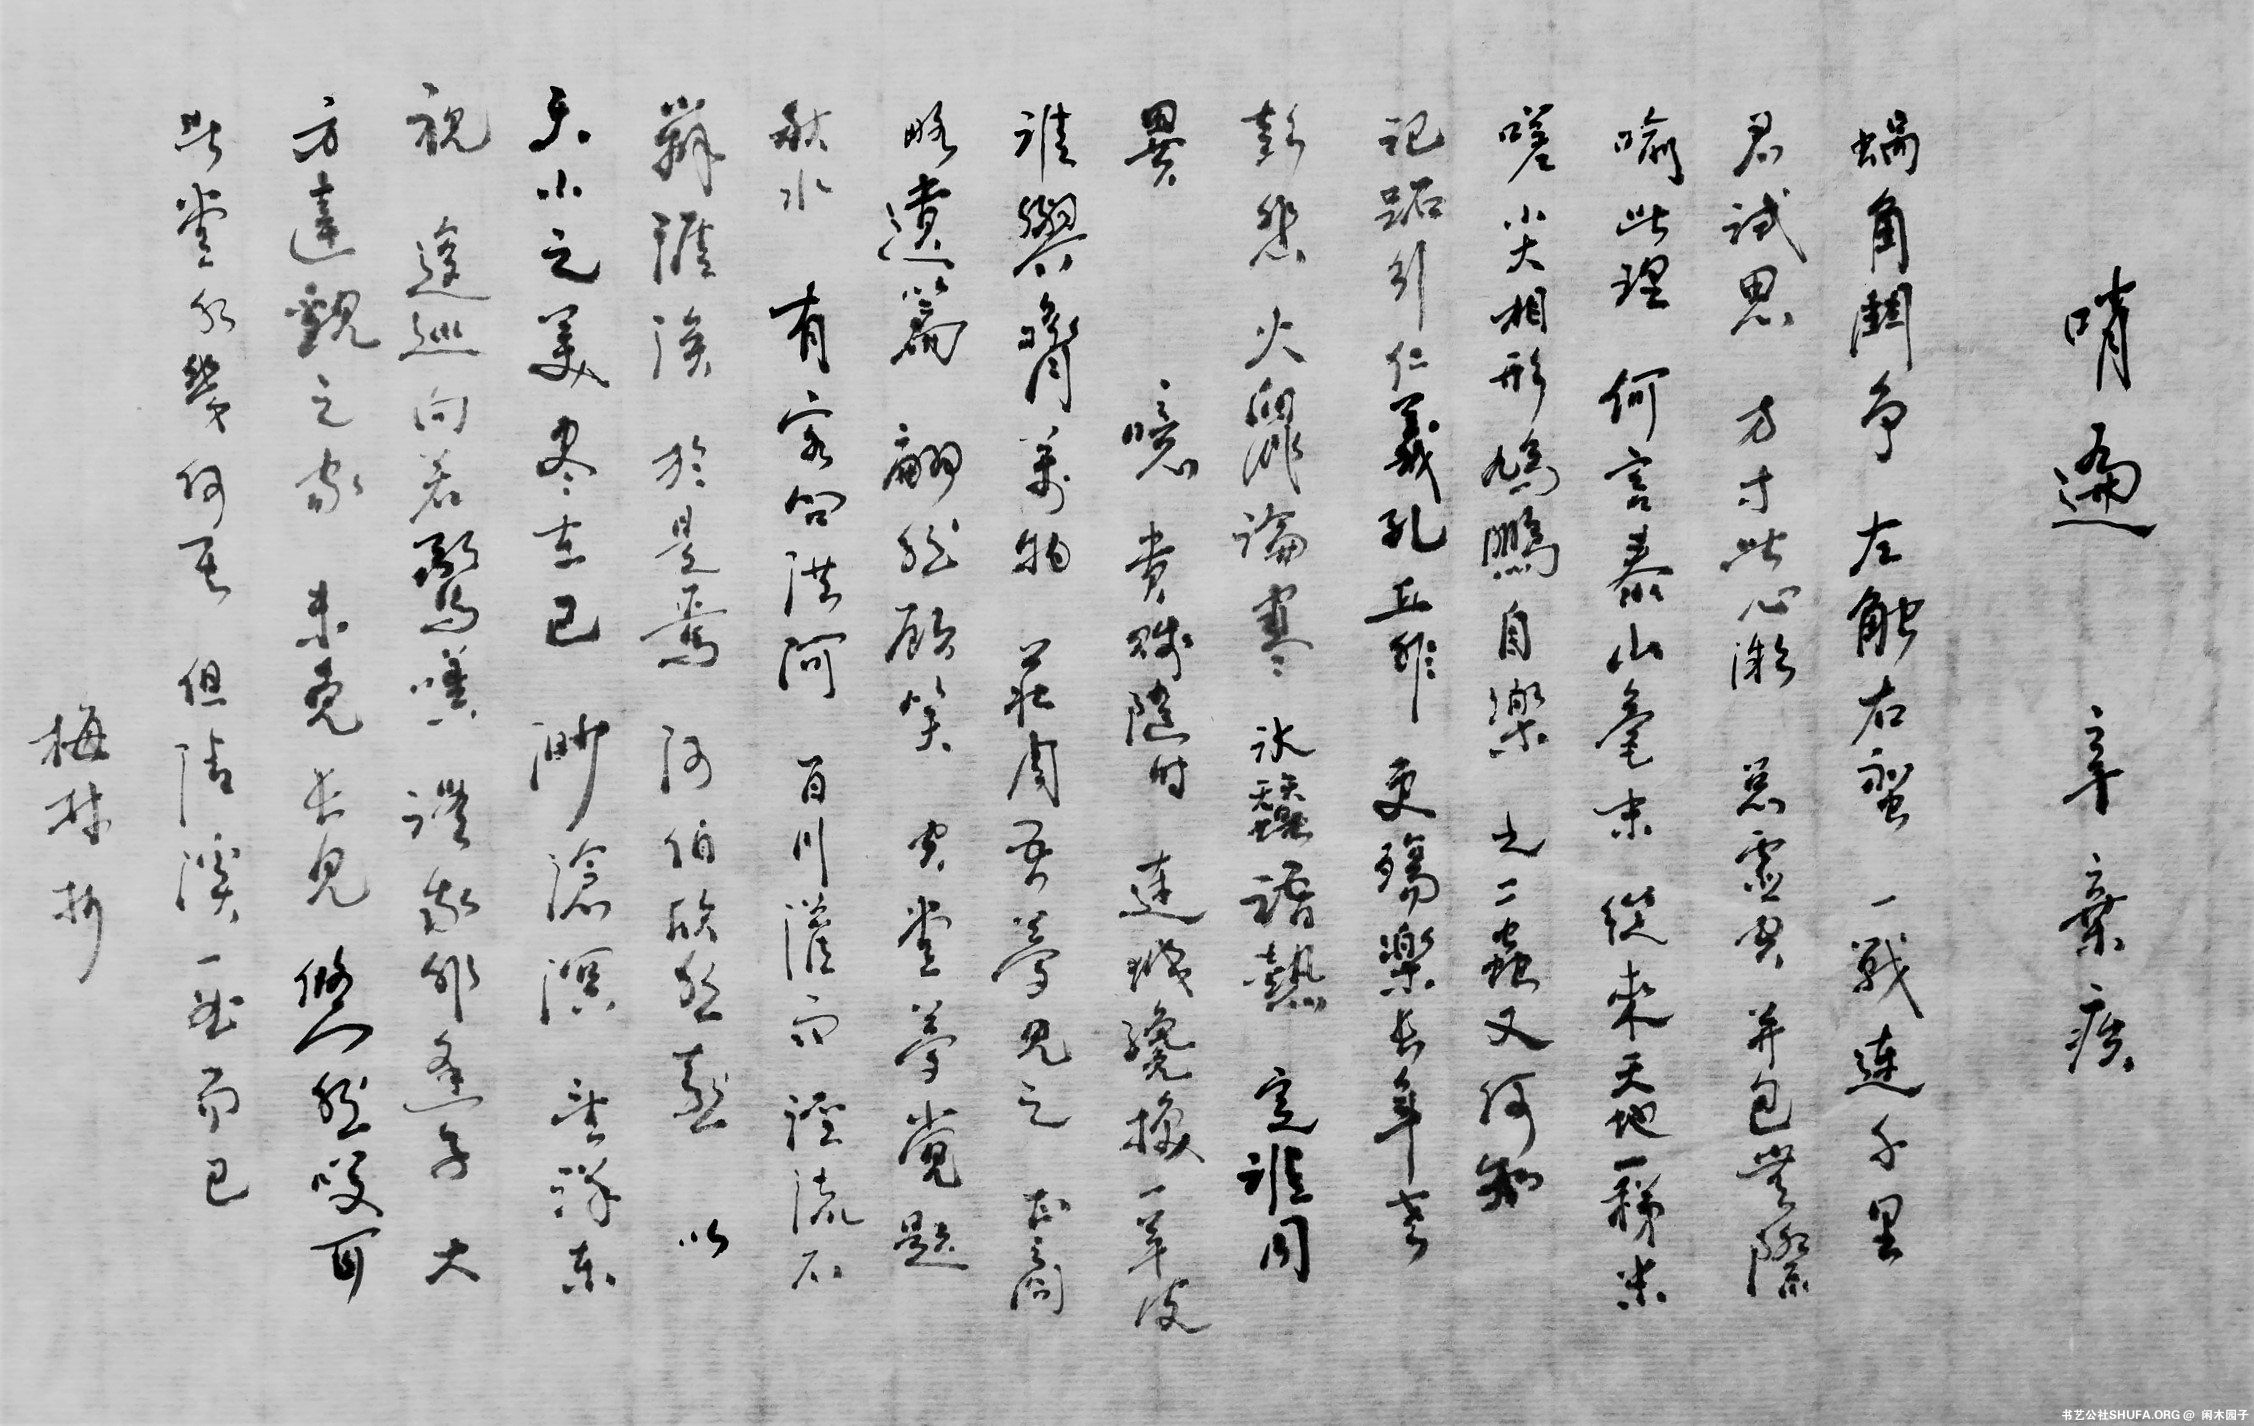 哨遍 辛棄疾
蝸角鬪争 左触右蛮 一戰連千里
君試思 方寸此心微 总虚空 并包無際
喻此理 何言泰山毫末 從來天地一稊米
嗟小大相形鳩鵬自樂 之二蟲又何知
記跖行仁義孔丘非 更殤樂長年老
彭悲 火鼠論寒 冰蠶語熱 定誰同
異 噫 貴賤隨时 連城纔換一羊皮
誰與齊萬物 莊周吾夢見之 正商
略遺篇 翩然顧笑 空堂夢覺題
秋水 有客問洪河 百川灌雨 涇流不
辨涯涘 於是焉 河伯欣然喜 以
天下之美尽在己 渺滄溟 望洋東
視 逡巡向若驚嘆 謂我非逢子 大
方達觀之家 未免長見 悠然笑耳
此堂水幾何其 但清溪一曲而已
梅村抄
书艺公社SHUFA.ORG @ 闲木园子